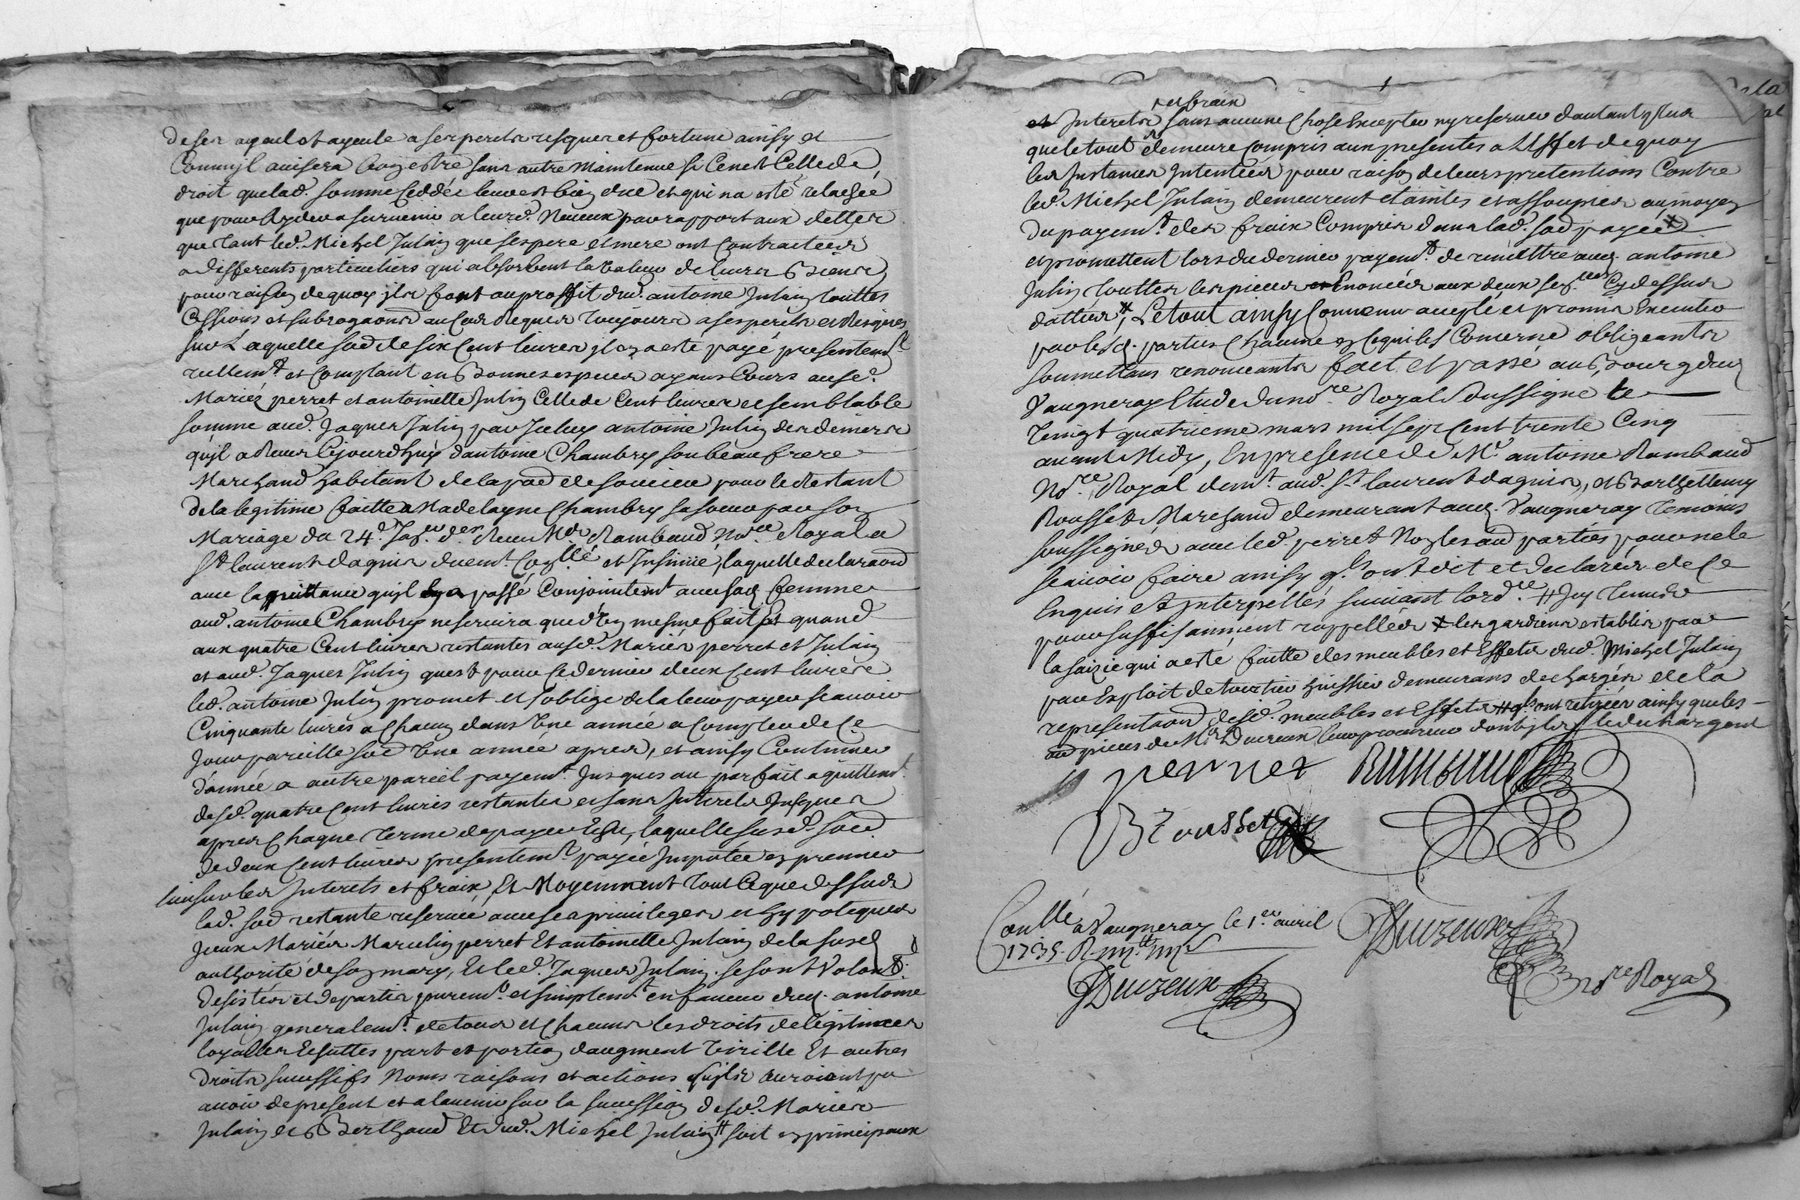 de ses ayeul et ayeule a ses perils risques et fortune ainsy et
comm'jl avisera bon estre sans autre maintenue si ce nest celle de
droit que lad. somme ceddée leur est bien due et qui na esté relachée
que pour ayder a survenir a leurd. neveux par rapport aux dettes
que tant led. Michel Julain que ses pere et mere ont contractées
a differents particuliers qui absorbent la valeur de leurs biens,
pour raison de quoy jls font au proffit dud. antoine Julain touttes
cessions et subrogaons au cas requis toujours a ses perils et risques
sur Laquelle soe de six cent livres jl en a esté payé presentemt.
reellemt. et comptant en bonnes especes ayans cours ausd.
Mariés perret et antoinette Julin celle de cent livres et semblable
somme aud. Jaques Julin par jcelluy antoine Julin des deniers
qu'jl a receu cejourd'huy d'antoine Chambry son beau frere
Marchand habitant de la paroe de soucieu pour le restant
de la legitime faitte a Madelayne Chambry sa soeur par son
Mariage du 24e. receu Me Rambaud Nore Royal a
St. laurent dagnis duemt. conllé et Insinué, laquelle declaraon
avec la quittance qu'jl a passé conjointemt avec sad. femme
aud. antoine Chambry ne servira que d'un mesme fait et quand
aux quatre cent livres restantes ausd. Mariés perret et Julain
et aud. Jaques Julin quest pour ce dernier deux cent livres
led. antoine Julin promet et s'oblige de la leur payer scavoir
cinquante livres a chacun dans une année a compter de ce
jour pareille soe une année apres, et ainsy continuer
d'année a autre pareil payemt. jusques au parfait aquittemt.
desd. quatre cent livres restantes et sans jnterets jusques
apres chaque terme de payer echu, laquelle susd. soe
de deux cent livres presentemt. payée jmputée en premier
lieu sur les jnterets et fraix, Et Moyennant tout ce que dessus
lad. soe restante reservée avec ses privileges et hypoteques
jceux Mariés Marcelin perret Et antoinette Julain de la susd.
authorité de son mary, Et led. Jaques Julain se sont volont.
desistés et departis puremt. et simplemt. en faveur dud. antoine
Julain generalemt. de tous et chacuns les droits de legitimes
loyalles echuttes part et portion d'augment virille Et autres
droits successifs noms raisons et actions qu'jls auroient pu
avoir de present et a lavenir sur la succession desd. Mariés
Julain et Berthaud Et dud. Michel Julain # soit en principaux
et fraix
et Interets sans aucune chose excepter ny reserver dautant plus
que le tout demeure compris aux presentes a L'Effet de quoy
les Instances Intentées pour raison de leurs pretentions contre
led. Michel Julain demeurent etaintes et assoupies au moyen
du payemt. des fraix compris dans lad. soe payée ×
et promettent lors du dernier payemt. de remettre aud. antoine
Julin touttes les pieces Enoncées aux deux cy dessus
dattées, Le tout ainsy convenu accepté et promis Executer
par lesd. parties chacune en ce qui les concerne obligeants
soumettans renonceants fait et passé au bourg dud.
Vaugneray Etude du nore Royal soussigne le
vingt quatrieme mars mil sept cent trente cinq
avant Midy, En presence de Me antoine Rambaud
Nore Royal demt. aud. St. laurent dagnis, et Barthellemy
Rousset Marchand demeurant aud. Vaugneray temoins
soussignés avec led. perret Non les aud parties pour ne le
scavoir faire ainsy qls ont dit et declarés de ce
Enquis et Jnterpellés suivant lordce # Jcy tenus
pour suffisamment rappellés × les gardiens establis par
la saisie qui a esté faitte des meubles et Effets dud. Michel Julain
par Exploit de huissier demeurans dechargés de la
representaon desd. meubles et Effets # qls ont retirées ainsy que les
pieces de Me Ducreux leur procureur dont jls le dechargent
perret Rambaud
B Rousset
Conllé a Vaugneray le 1er avril
1735.
Duizeux
Duizeux
nore Royal